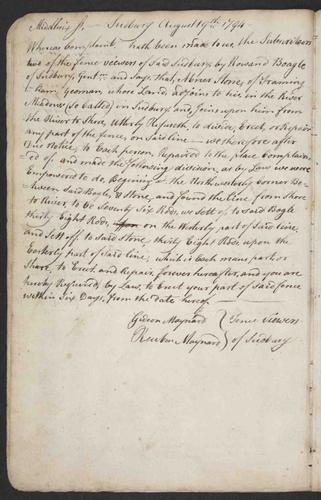 Middlesex Ss — Sudbury August 19th 1794 —
Whereas Complaint hath been made to us, the Subscribers
two of the fence viewers of said Sudbury, by Rowand Bogle
of Sudbury, Gent. and Says that Abner Stone, of Framing
ham, Yeoman, whose Land adjoins to his in the River
Meadow (so called) in Sudbury, and, joins upon him from
the River to Shore, utterly Refuseth, to divide, Erect, or Repair
any part of the fence, on said line — we therefore after
Due Notice, to Each person, Repaired to the place, Complain
ed of, and made the following division, as by Law we were
Empowered to do, Begining at the Northwesterly corner Be
tween said Bogle, & Stone, and found the line from Shore
to River, to be Seventy Six Rods, we Sett off to said Bogle
thirty Eight Rods, on the Westerly part of said line,
and Sett off to said Stone, thirty Eight Rods, upon the
Easterly part of said line, which is Each mans part or
Share, to Erect, and Repair, forever hereafter, and you are
hereby Required, by Law, to Erect your part of said fence
within Six Days, from the date hereof —
Gideon Maynard } Fence Viewers
Reuben Maynard } of Sudbury